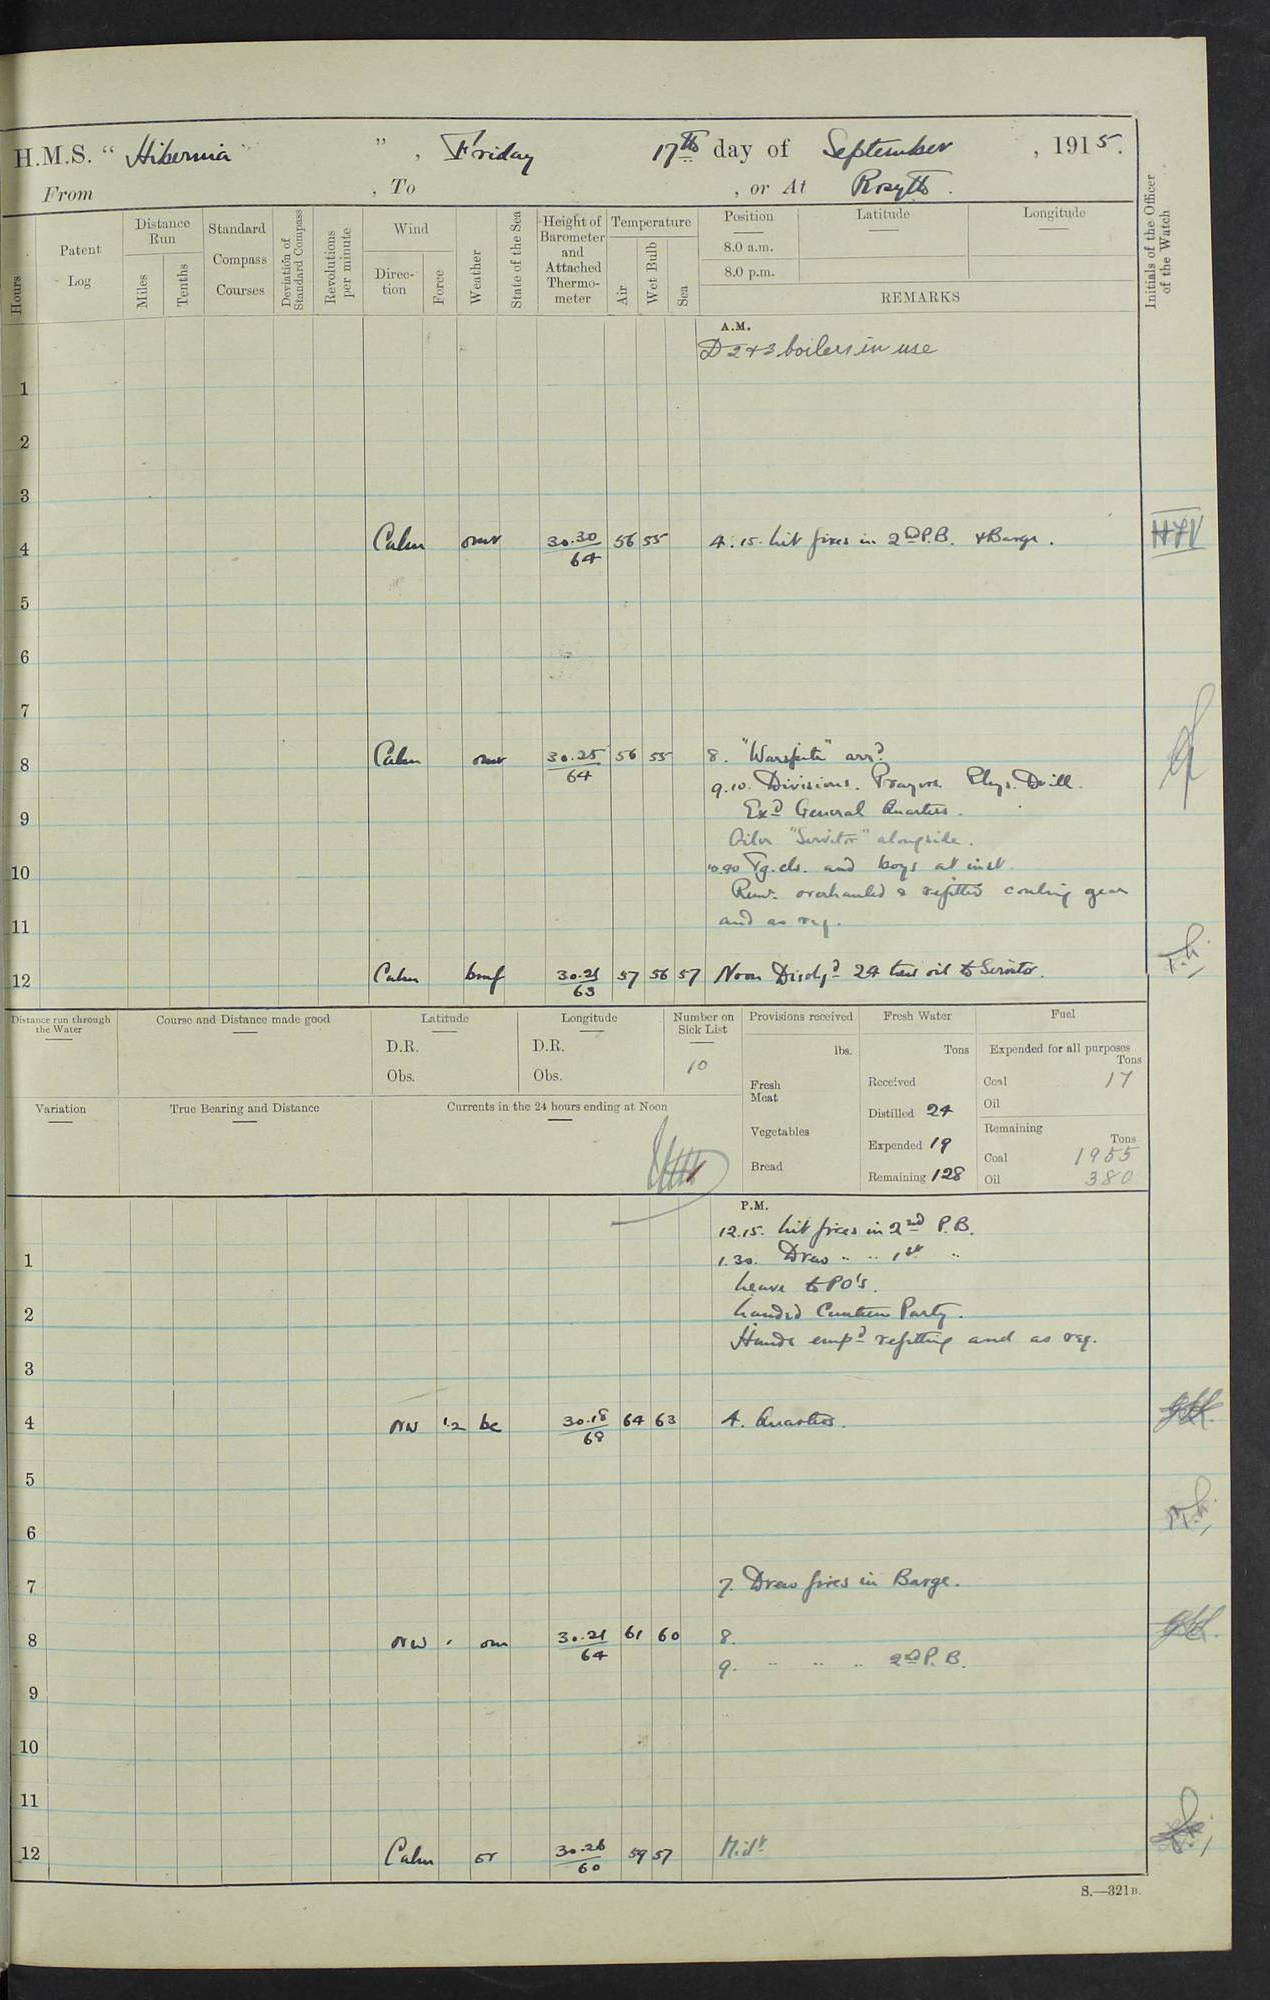 H.M.S. " Hibernia " , Friday 17th day of September , 1915.
From , To , or At Rosyth.
Hours
Patent Log
Distance Run
Miles
Tenths
Standard Compass Courses
Deviation of Standard Compass
Revolutions per minute
Wind
Direction
Force
Weather
State of the Sea
Height of Barometer and Attached Thermometer
Temperature
Air
Wet Bulb
Sea
Position
8.0 a.m.
8.0 p.m.
Latitude
Longitude
REMARKS
Initials of the Officer of the Watch
A.M.
D 2 & 3 boilers in use
1
2
3
4 Calm omr 30.30/64 56 55 4.15. lit fires in 2nd P.B. & Barge.
5
6
7
8 Calm omr 30.25/64 56 55 8. "Warspite" arrd.
9.10. Divisions. Prayers Phys. Drill.
Exd General Quarters.
9
Oiler "Servitor" alongside.
10
Tg. cls. and boys at inst.
Remr. overhauled & refitted coaling gear
and as req.
11
12 Calm bmf 30.21/63 57 56 57 Noon Dischgd 24 tons oil to Servitor.
Distance run through the Water
Course and Distance made good
Latitude
D.R.
Obs.
Longitude
D.R.
Obs.
Number on Sick List
10
Provisions received
lbs.
Fresh Meat
Vegetables
Bread
Fresh Water
Tons
Received
Distilled 24
Expended 19
Remaining 128
Fuel
Expended for all purposes
Tons
Coal 17
Oil
Remaining
Tons
Coal 1955
Oil 380
Variation
True Bearing and Distance
Currents in the 24 hours ending at Noon
P.M.
12.15. lit fires in 2nd P.B.
1
1.30. Drew " " 1st "
Leave to PO's.
2
Landed Canteen Party.
Hands empd refitting and as req.
3
4 NW 1.2 bc 30.18/68 64 63 4. Quarters.
5
6
7 7. Drew fires in Barge.
8 NW 1 om 30.21/64 61 60 8.
9. " " " 2nd P.B.
9
10
11
12 Calm or 30.26/60 59 57 Midt
S.—321B.